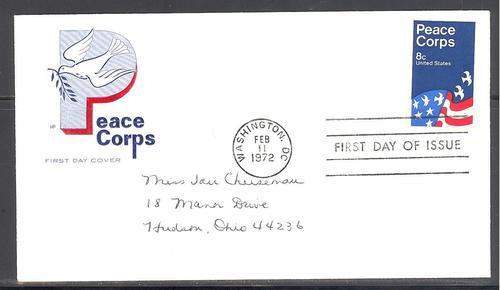 Peace
Corps
8c
United States
Peace
Corps
HF
FIRST DAY COVER
WASHINGTON, DC
FEB
11
1972
FIRST DAY OF ISSUE
Miss Jan
18 Manor Drive
Hudson, Ohio 44236